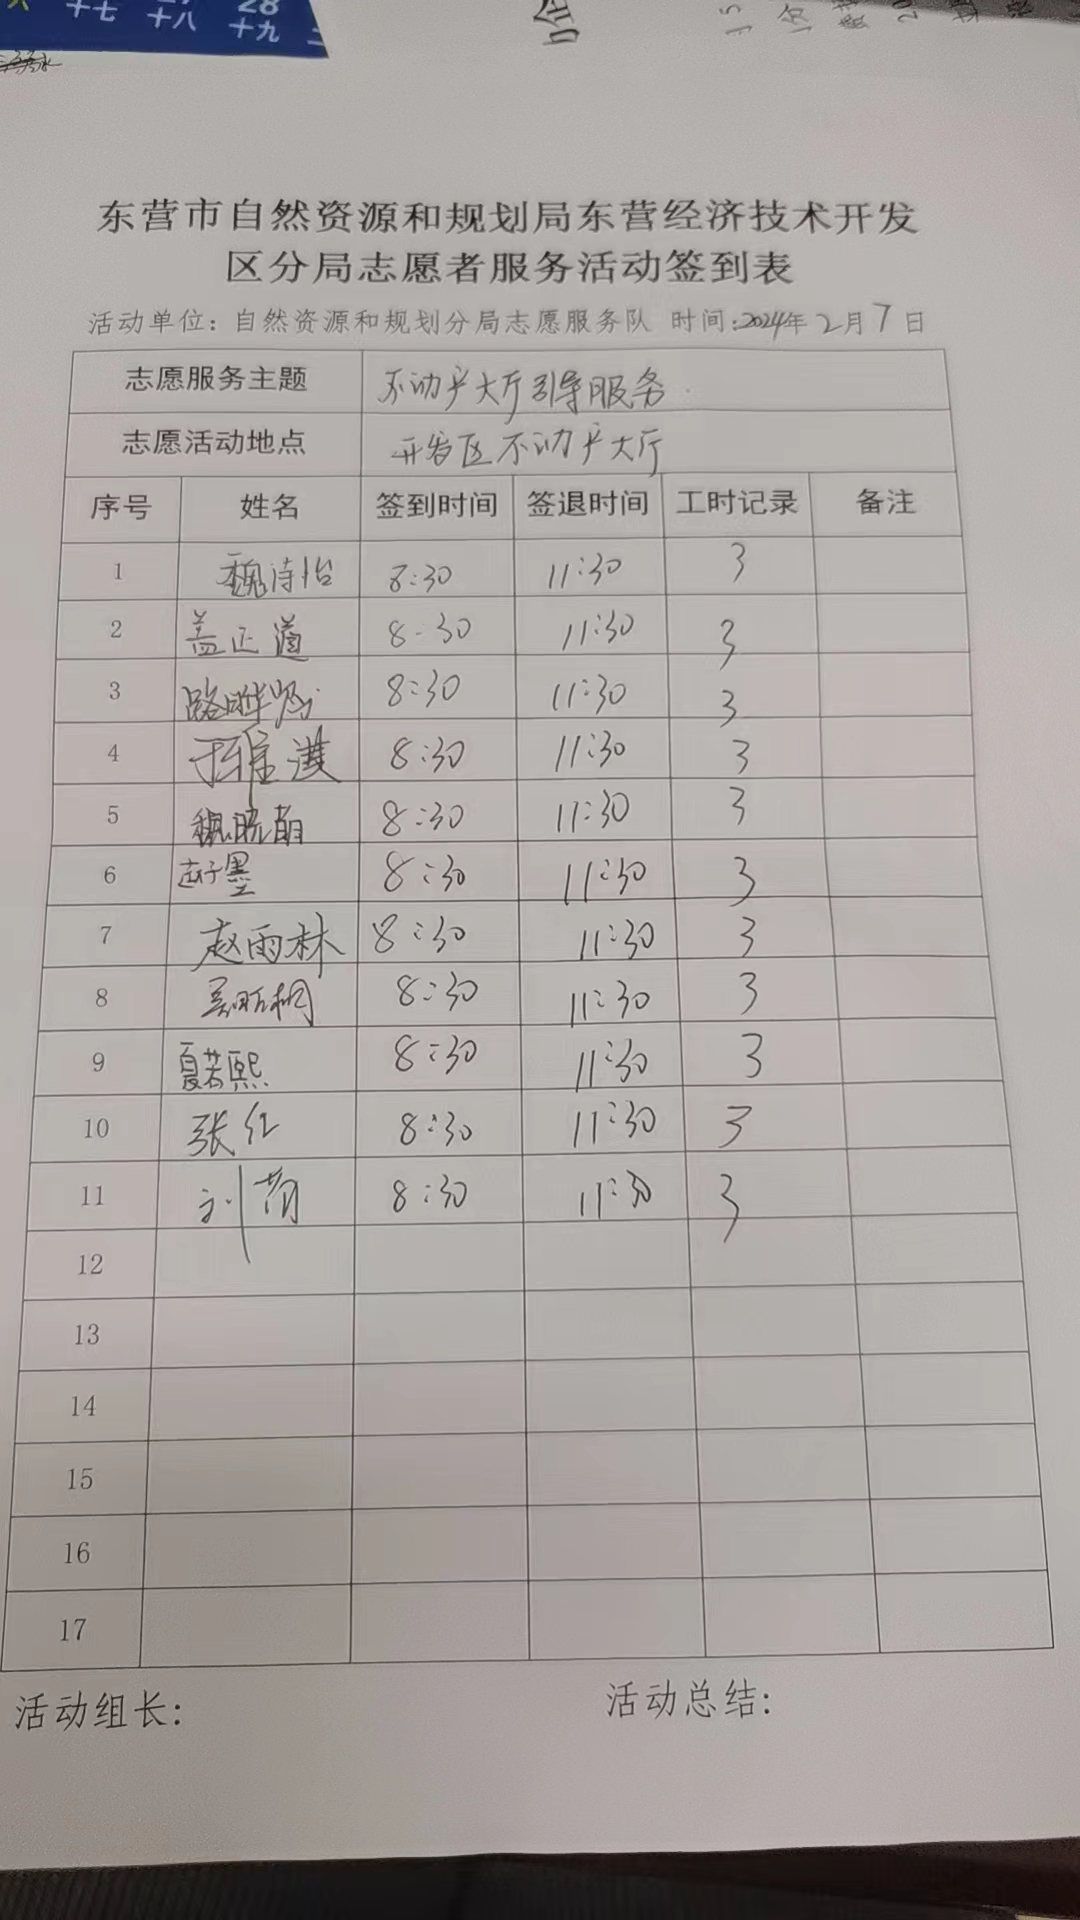 28
十七 十八 十九
东营市自然资源和规划局东营经济技术开发
区分局志愿者服务活动签到表
活动单位：自然资源和规划分局志愿服务队 时间:2024年2月7日
志愿服务主题 不动产大厅引导服务
志愿活动地点 开发区不动产大厅
序号 姓名 签到时间 签退时间 工时记录 备注
1 魏诗怡 8:30 11:30 3
2 盖正道 8:30 11:30 3
3 8:30 11:30 3
4 8:30 11:30 3
5 魏晓萌 8:30 11:30 3
6 赵子墨 8:30 11:30 3
7 赵雨林 8:30 11:30 3
8 8:30 11:30 3
9 夏若熙 8:30 11:30 3
10 张红 8:30 11:30 3
11 8:30 11:30 3
12
13
14
15
16
17
活动组长: 活动总结: